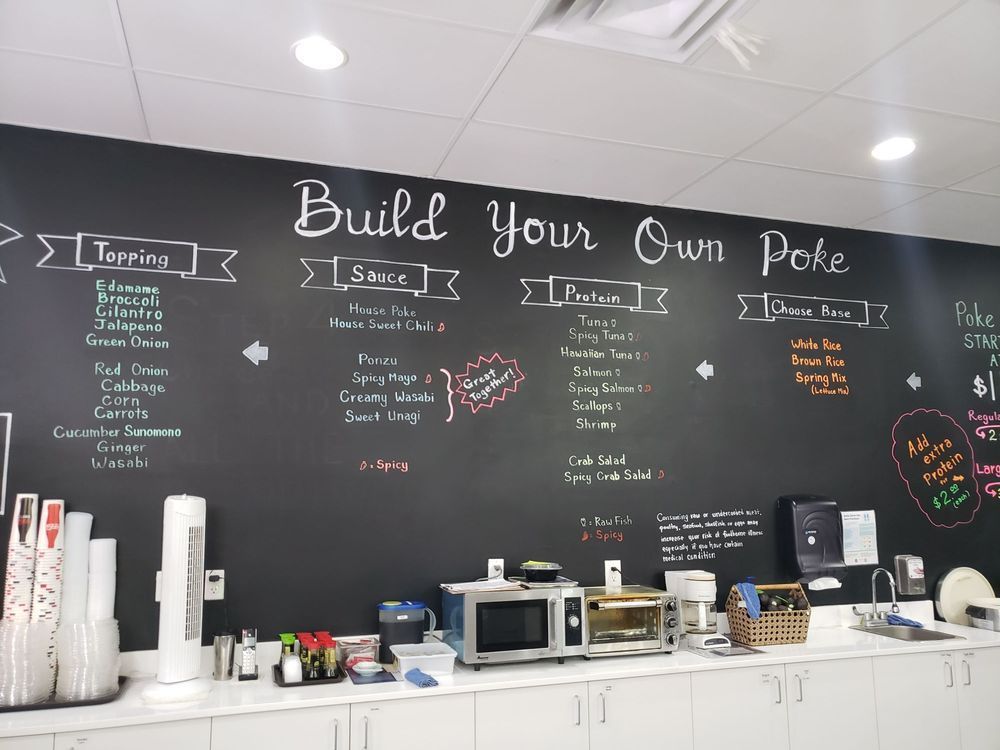 Build Your Own Poke
Topping
Edamame
Broccoli
Cilantro
Jalapeno
Green Onion
Red Onion
Cabbage
Corn
Carrots
Cucumber Sunomono
Ginger
Wasabi
Sauce
House Poke
House Sweet Chili
Ponzu
Spicy Mayo
Creamy Wasabi
Sweet Unagi
Great
Together!
= Spicy
Protein
Tuna
Spicy Tuna
Hawaiian Tuna
Salmon
Spicy Salmon
Scallops
Shrimp
Crab Salad
Spicy Crab Salad
= Raw Fish
= Spicy
Consuming raw or undercooked meat,
poultry, seafood, shellfish or eggs may
increase your risk of foodborne illness
especially if you have certain
medical condition
Choose Base
White Rice
Brown Rice
Spring Mix
(Lettuce Mix)
Add
extra
Protein
for
$2.00
(each)
Poke
START
A
$1
Regula
2
Larg
3